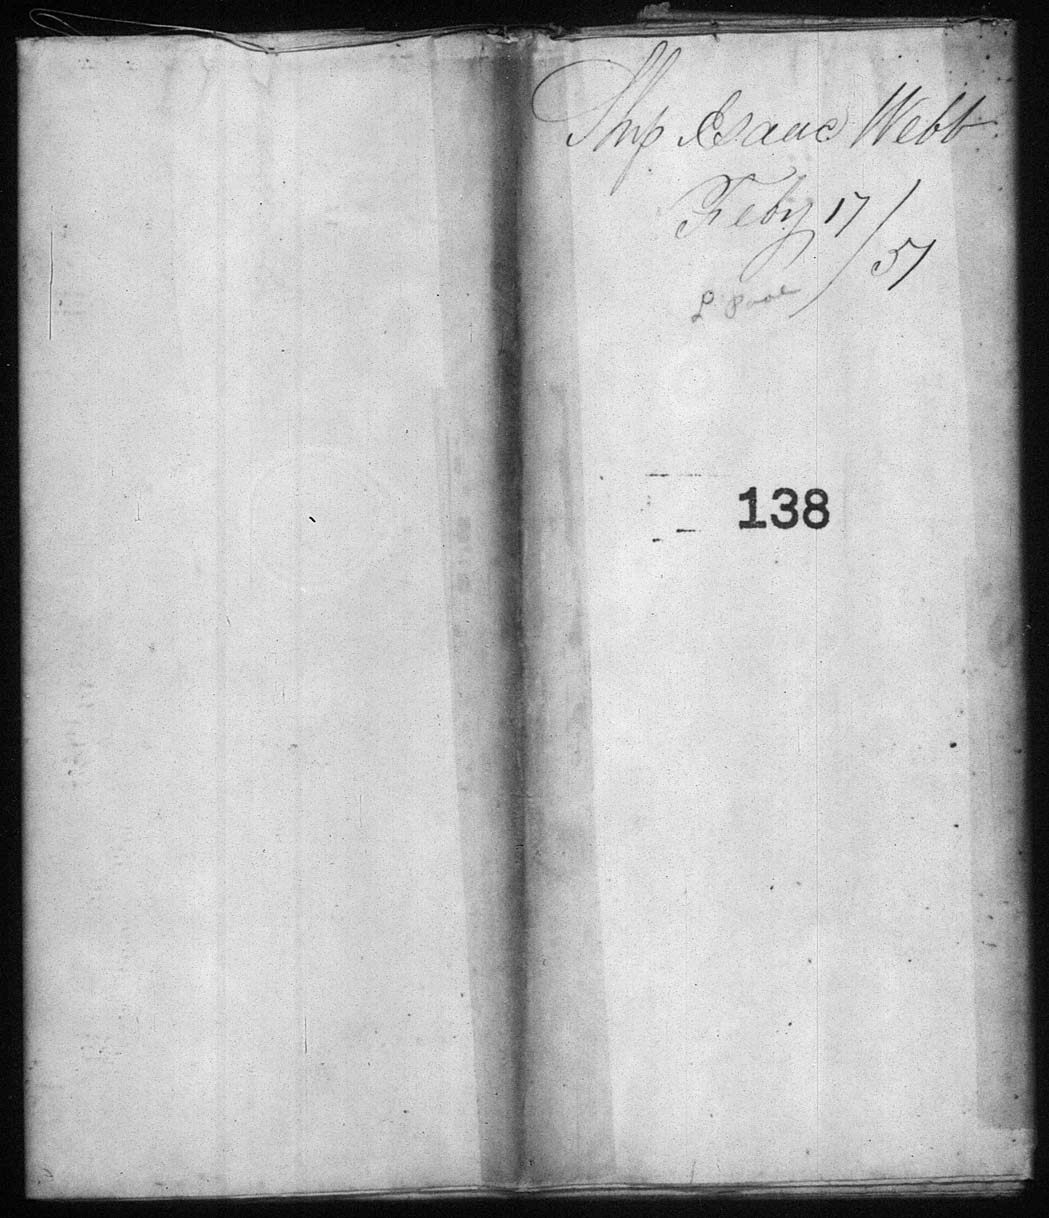 Ship Isaac Webb
Feby 17/57
L'pool
138